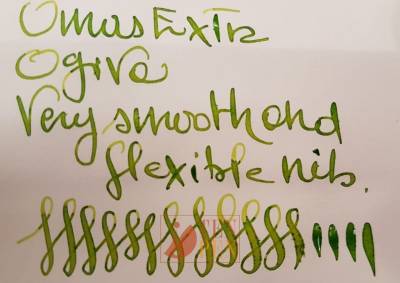 Omas Extra
Ogiva
Very smooth and
flexible nib.